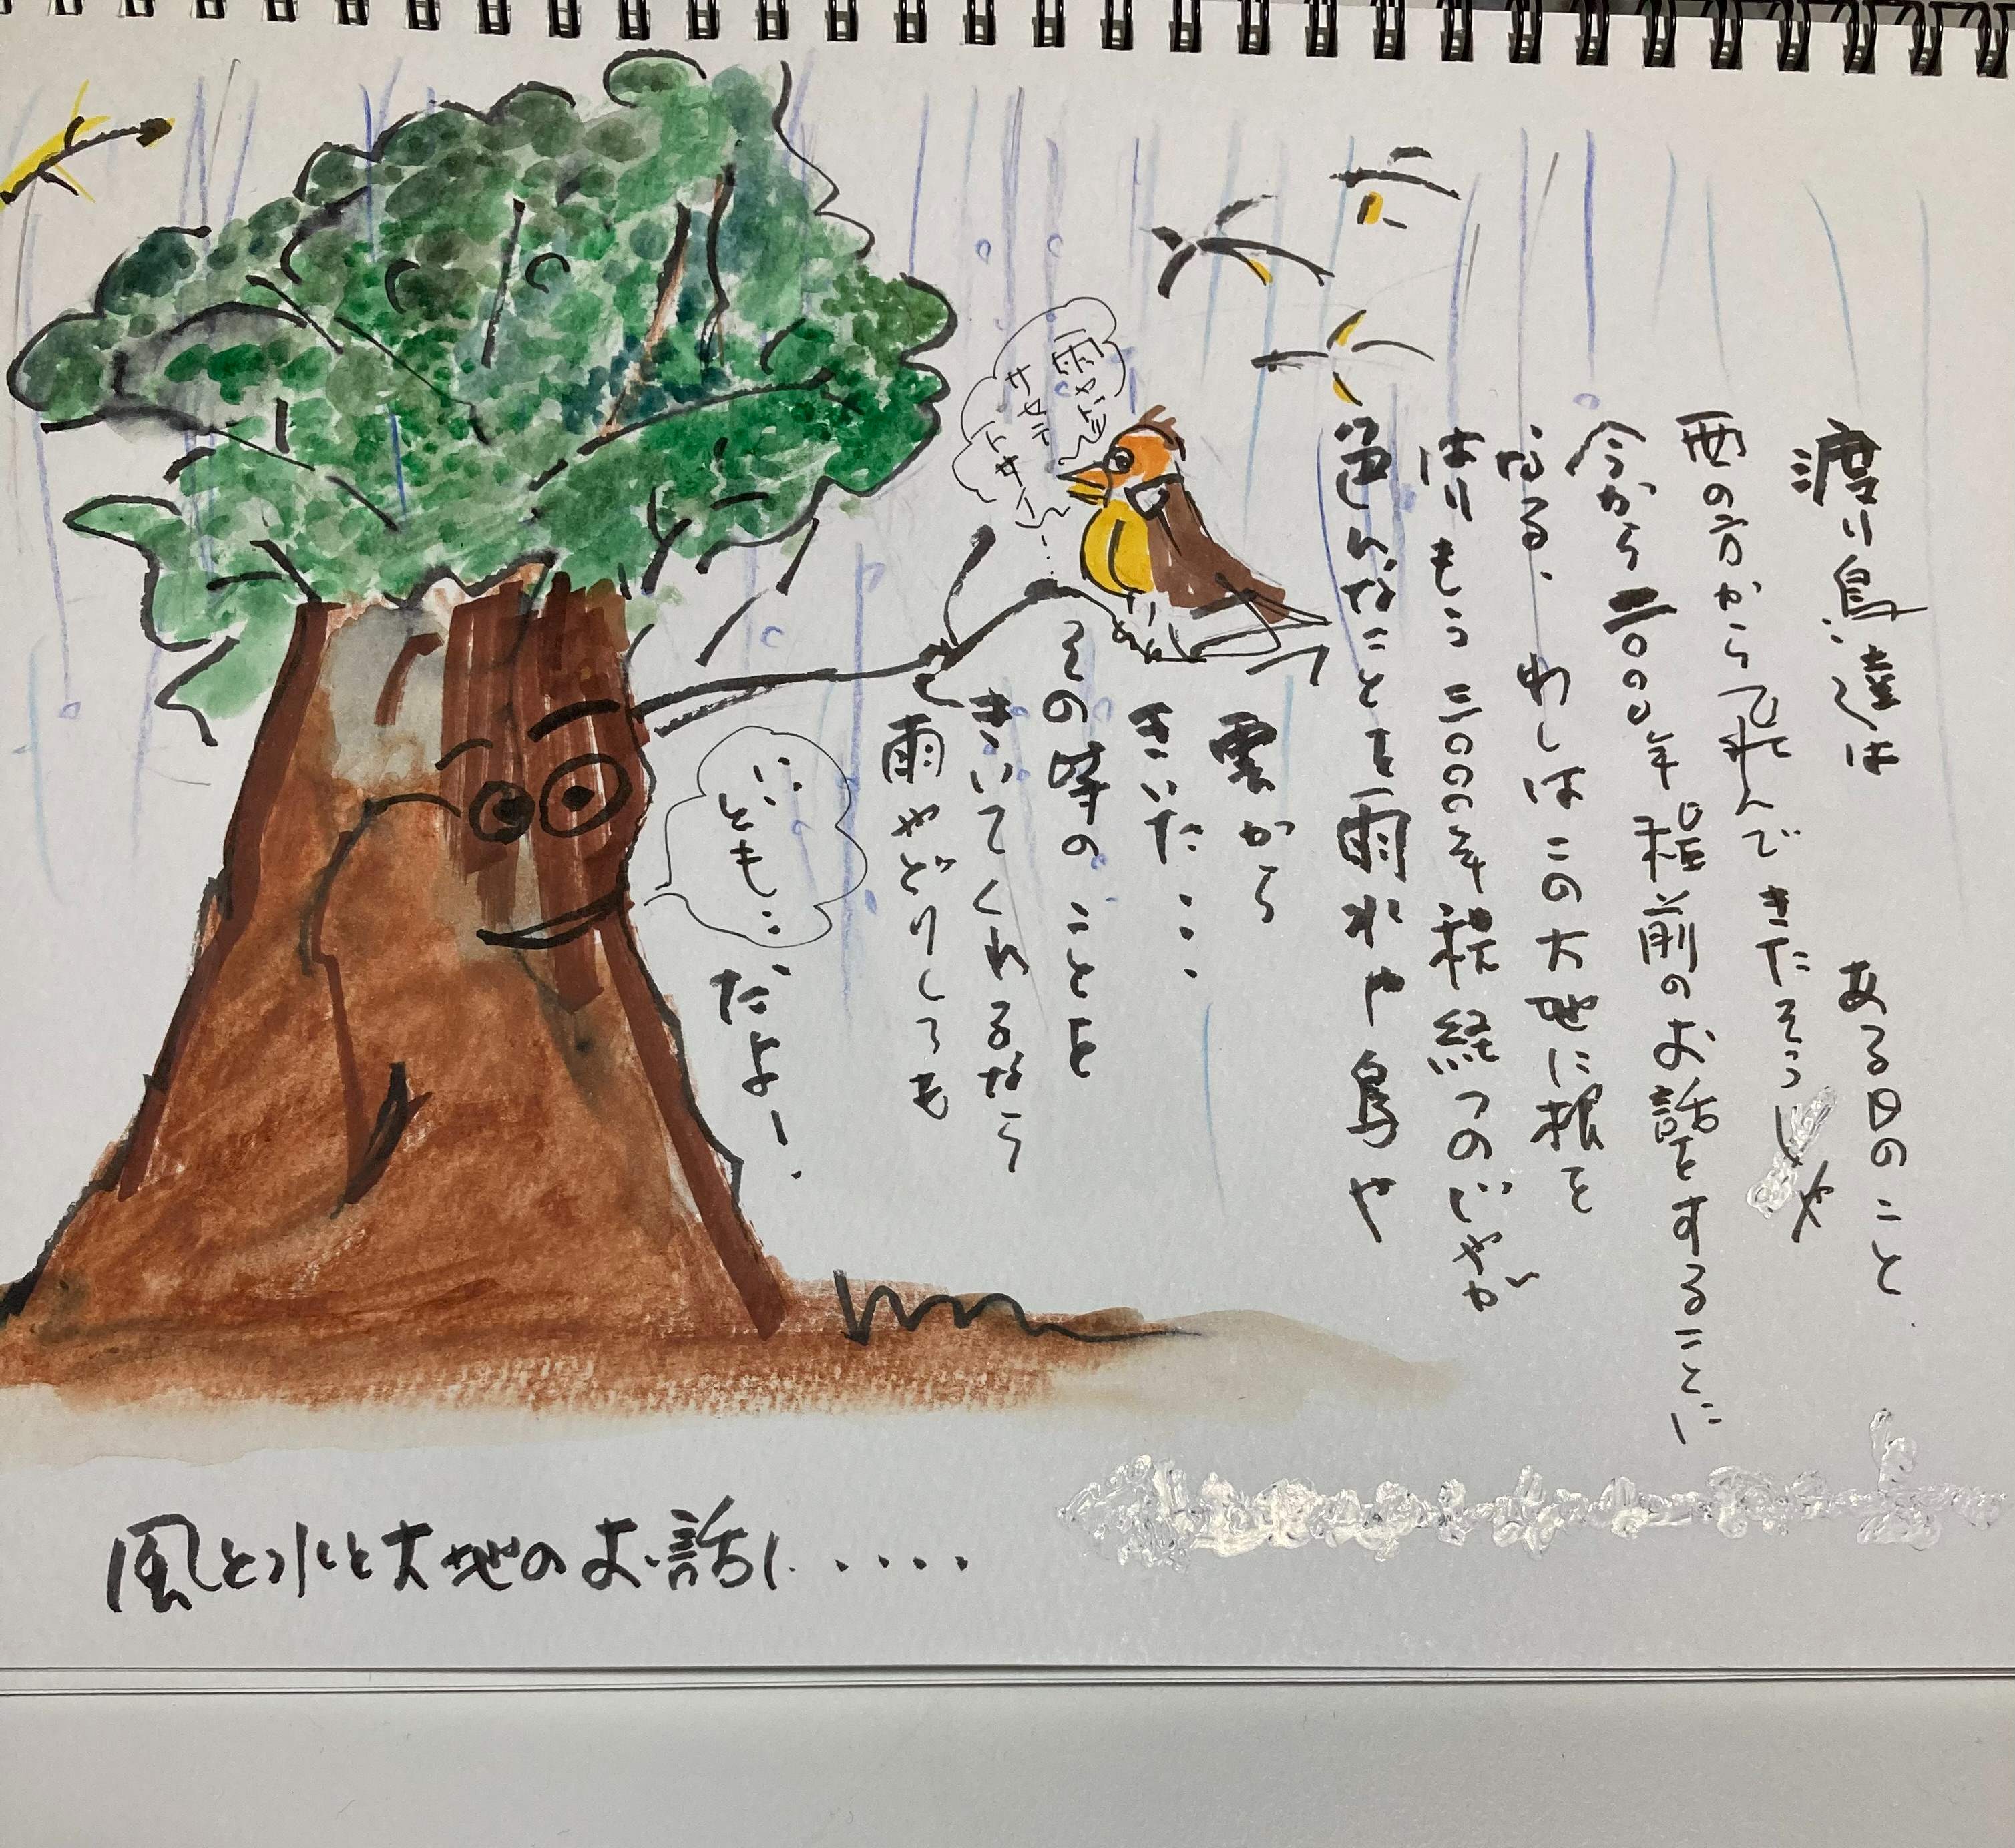 渡り鳥達は ある日のこと
西の方から飛んできたそうじゃ
今から三〇〇〇年程前のお話をすることに
なる、わしはこの大地に根を
はりもう三〇〇〇年程経つのじゃが
色んなことを雨水や鳥や
雲から
きいた・・・
その時のことを
きいてくれるなら
雨やどりしても
いい
とも・・
だよー.
雨やどり
させて
トサー
風と水と大地のお話し.....